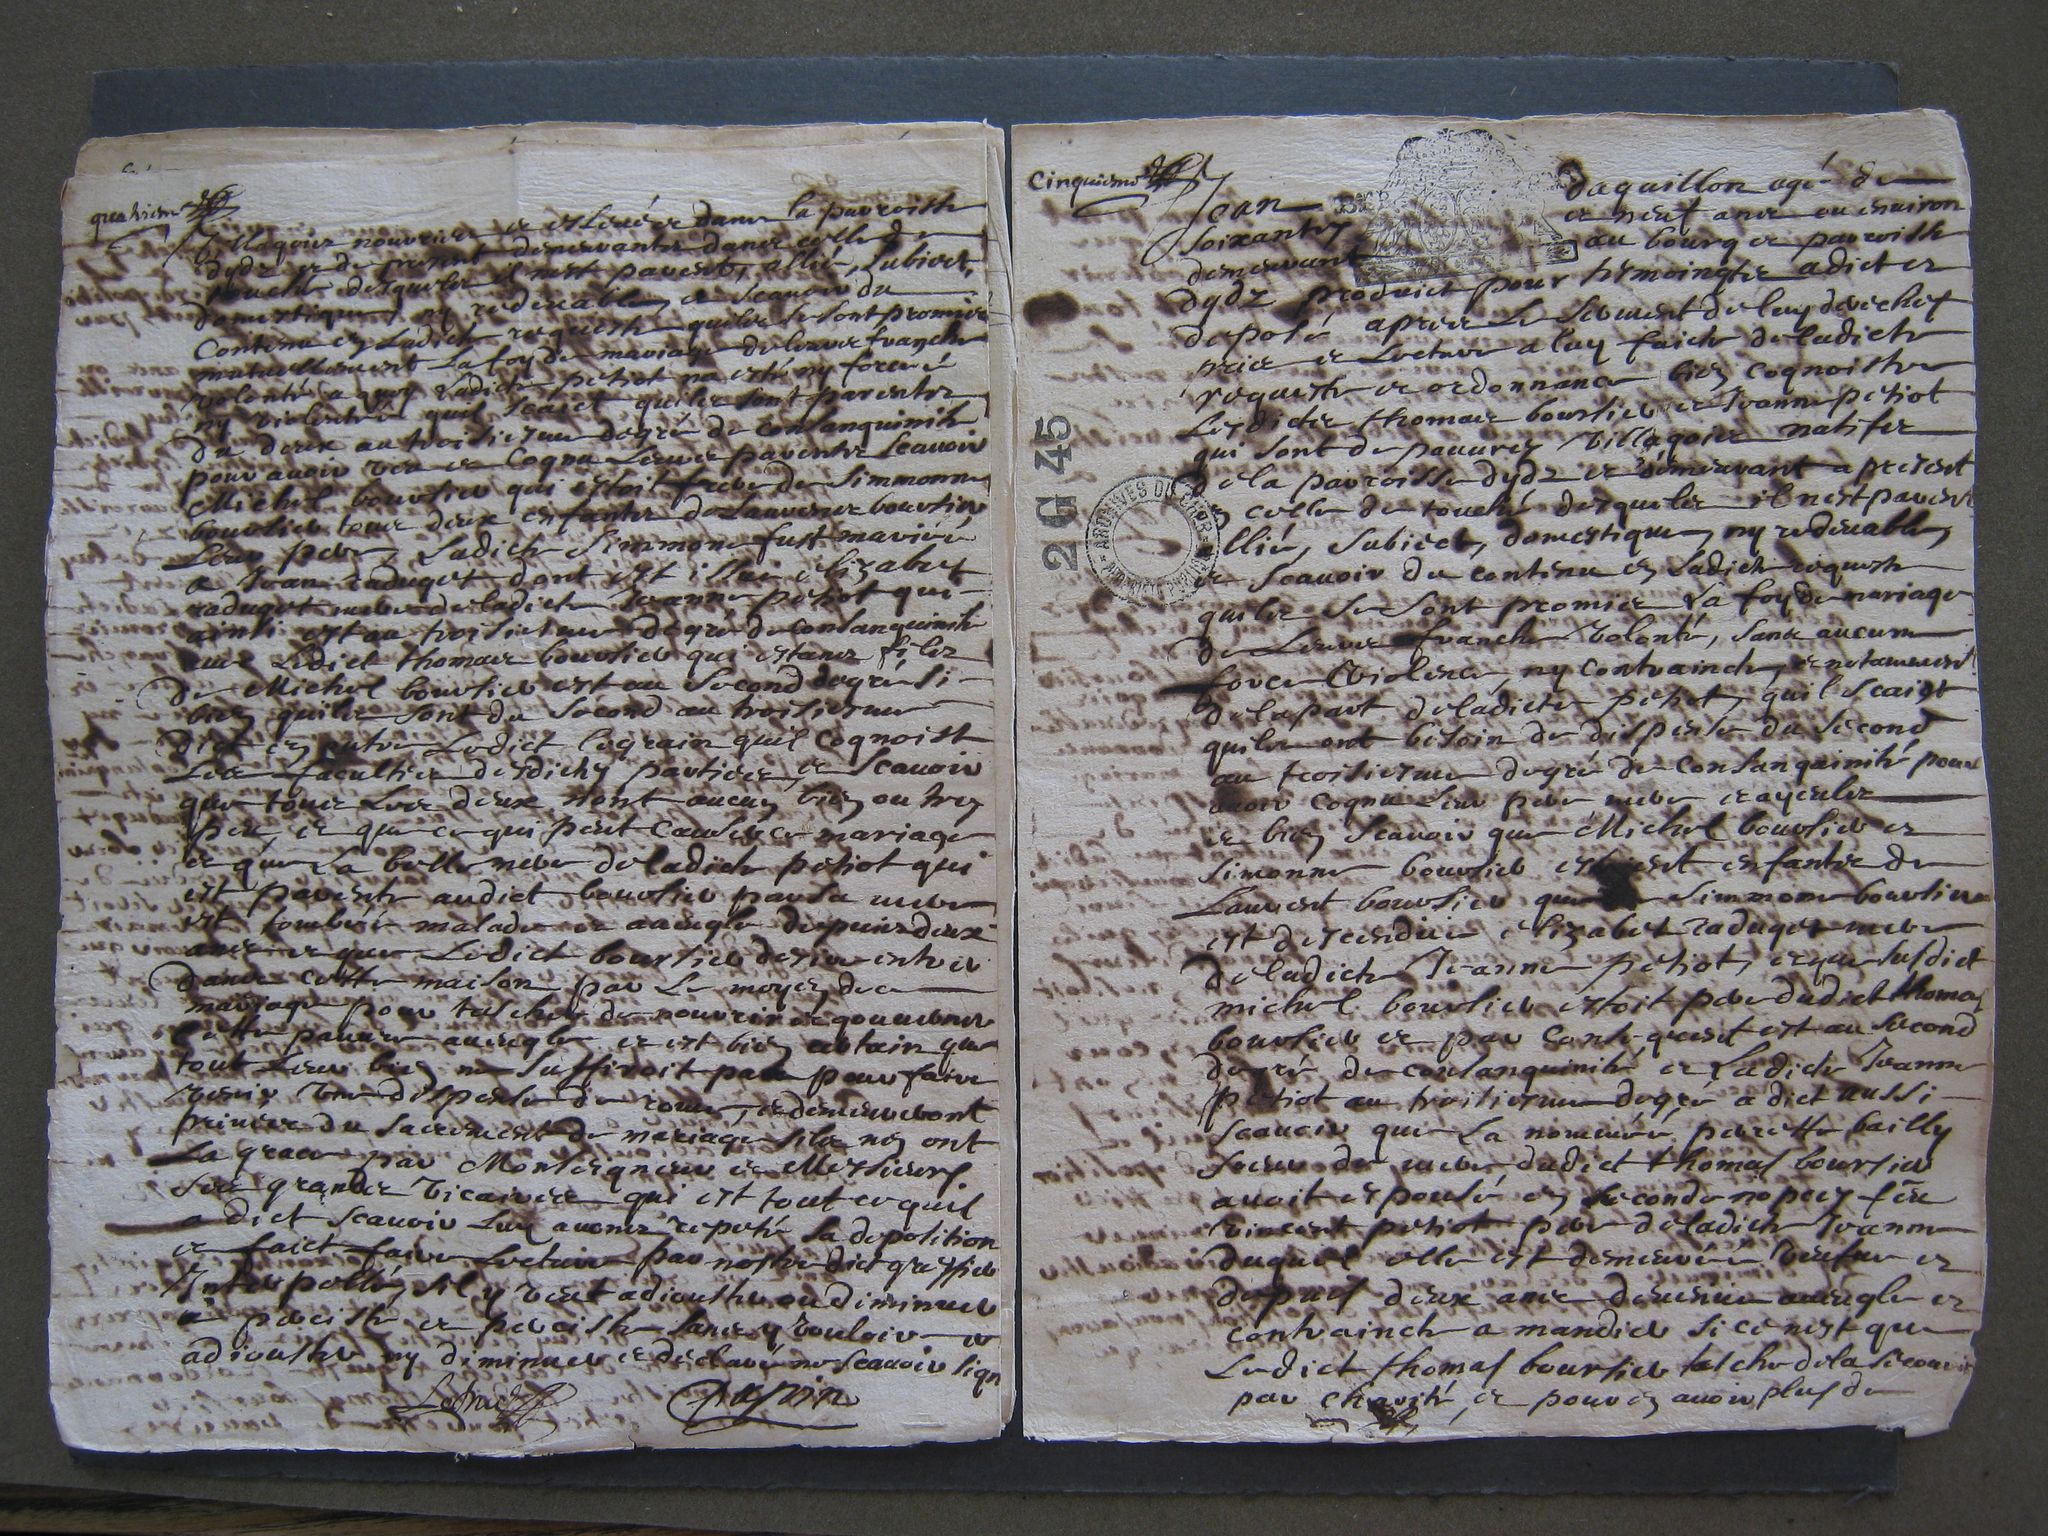 quatriesme
villagoirs nourrier et eslevée dans la parroisse
dydz et de present demeurantz dans celle de
touché desquelz il nest parent, allié, subiect,
domestique, ny redevable, et scavoir du
contenu en ladicte requeste quilz se sont promis
mutuellement la foy de mariage de leurs franche
volonté a quoy ladicte petiot na esté ny forcée
ny violentée quil scaict quilz sont parentz
du deux au troisiesme degré de consanguinité
pour avoir veu et cognu leurs parentz scavoir
Michel boursier qui estoit frere de Simmonne
boursier tous deux enfantz de Laurens boursier
leur pere, ladicte Simmonne fust mariée
a Jean raduget dont est issue elizabet
raduget mere de ladicte Jeanne petiot qui
ainsi est au troisiesme degré de consanguinité
avec ledict thomas boursier qui estant filz
de Michel boursier est au second degré si
bien quilz sont du second au troisiesme
dict en outre ledict legrain quil cognoist
les facultés desdictz parties, et scavoir
que tous les deux nont aucun bien ou tres
peu, et que ce qui peut causer ce mariage
et que la belle mere de ladicte petiot qui
est parente audict boursier par sa mere
est tombée malade et aveugle depuis deux
ans et que ledict boursier desire entrer
dans cette maison par le moyen de ce
mariage pour tascher de nourrir et gouverner
cette pauvre aveugle et est bien certain que
tout leur bien ne suffiroit pas pour faire
venir une dispense de rome, et demeureront
privés du sacrement de mariage silz nen ont
la grace par Monseigneur et Messieurs
ses grandz vicaires qui est tout ce quil
a dict scavoir luy avons repeté sa deposition
et faict faire lecture par nostre dict greffier
Interpellé, sil y veut adiouster ou diminuer
a persisté et persiste sans y vouloir
adiouster ny diminuer et declaré ne scavoir sign
Cinquiesme
Jean daguillon agé de
soixante et neuf ans ou environ
demeurant au bourg et parroisse
dydz produict pour tesmoingtz a dict et
deposé apres le serment de luy derechef
pris et lecture a luy faicte de ladicte
requeste et ordonnance bien cognoistre
lesdictz thomas boursier et Jeanne petiot
qui sont de pauvres villagois natifz
de la parroisse dydz et demeurant a present
en celle de touché desquelz il nest parent
allié, subiect, domestique, ny redevable,
et scavoir du contenu en ladicte requeste
quilz se sont promis la foy de mariage
de leurs franche volonté, sans aucune
force violence, ny contraincte, et notamment
de la part de ladicte petiot, quil scaict
quilz ont besoin de dispense du second
au troisiesme degré de consanguinité pour
avoir cognu leur pere mere et ayeulz
et bien scavoir que Michel boursier et
Simonne boursier estoient enfantz de
Laurent boursier que Simmonne boursier
est descendue elizabet raduget mere
de ladicte Jeanne petiot, et que susdict
michel boursier estoit pere dudict thomas
boursier et par consequent est au second
degré de consanguinité, et ladicte Jeanne
petiot au troisiesme degré a dict aussi
scavoir que la nommée perrette bailly
soeur de mere dudict thomas boursier
avoit espousé en secondes nopces feu
vincent petiot pere de ladicte Jeanne
duquel elle est demeurée veufve et
depuis deux ans devenue aveugle et
contraincte a mandier si ce nest que
ledict thomas boursier tasche de la secourir
par charité, et pour en avoir plus de
2G 45
ARCHIVES DU CHER